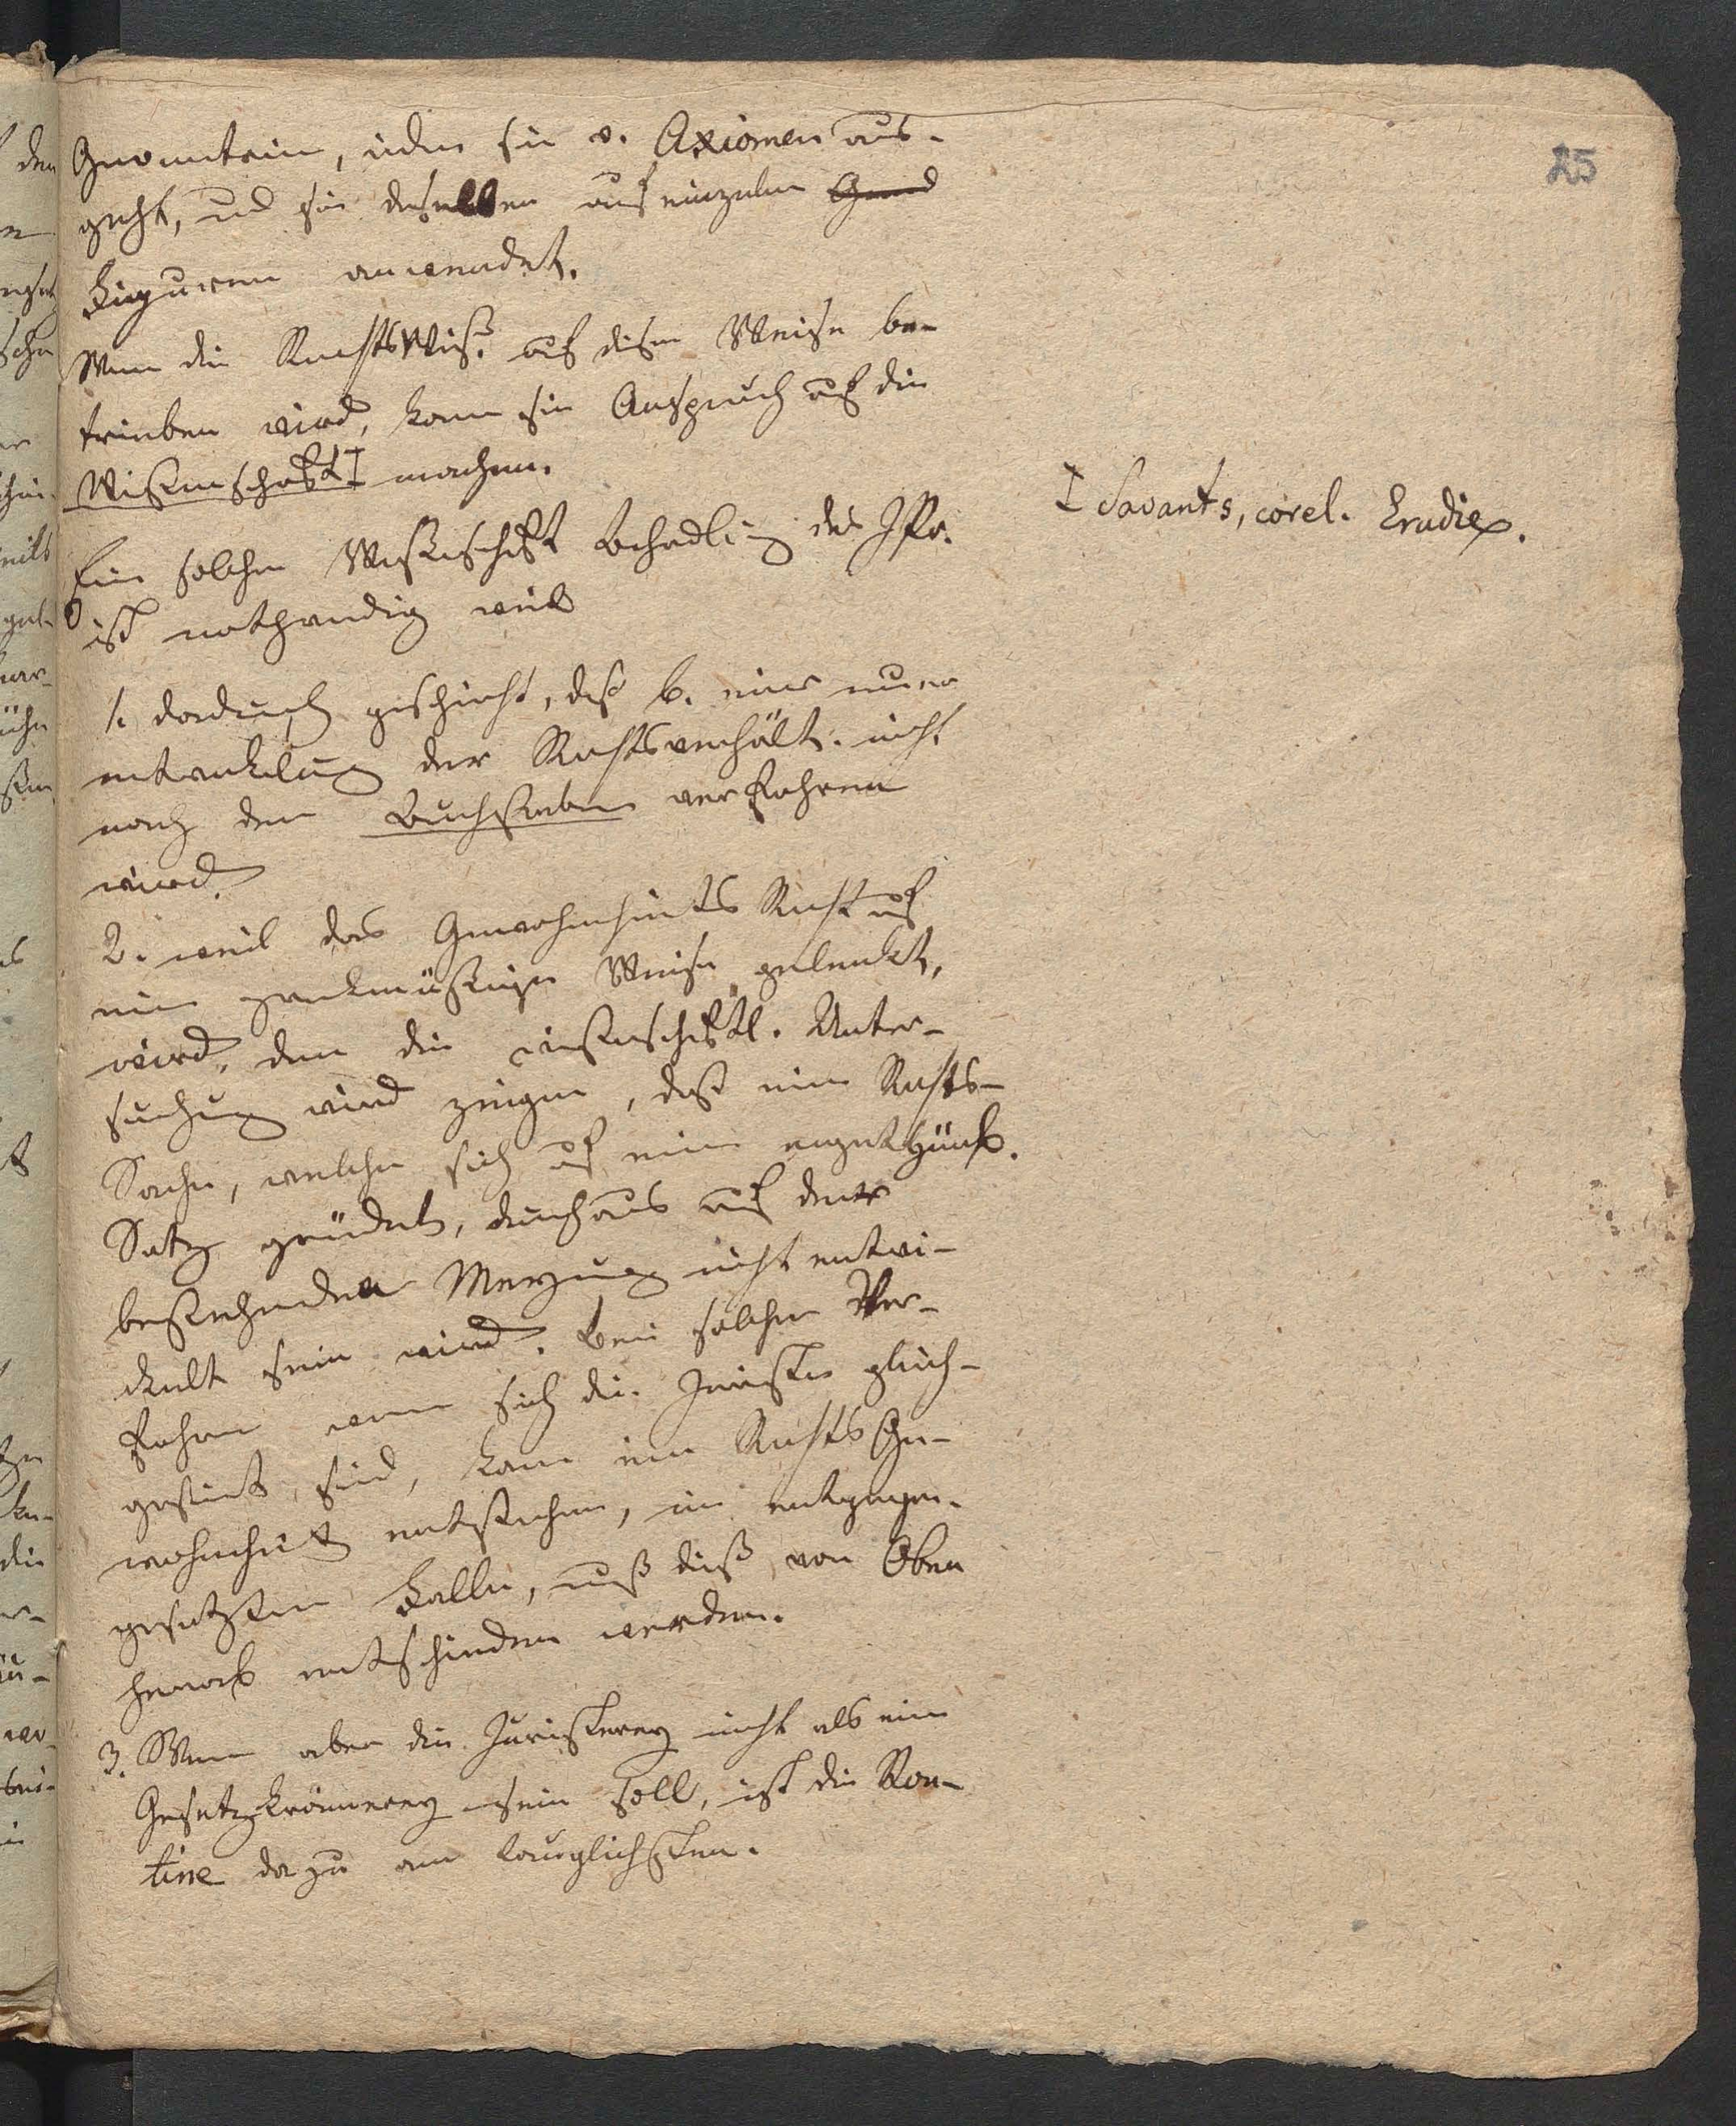 25
Geometrie, indem sie v. Axiomen aus-
geht, und sie dieselben auf einzelne
Figuren anwendet.
Wenn die RechtsWiß. auf diese Weise be-
trieben wird, kann sie Anspruch auf die
Wißenschaft ‡ machen.
‡ Savants, corel.
Eine solche Wißenschaft Behandlung des
ist nothwendig weil
1. dadurch geschieht, daß b. einer neuen
entwickelung der Rechtsverhält. nicht
nach dem Buchstaben verfahren
wird.
2. weil das Gewohnheits Recht auf
eine zweckmäßige Weise gelenkt,
wird, denn die wißenschaftl. Unter-
suchung wird zeigen, daß eine Rechts-
Sache, welche sich auf eine
Satz gründet, durchaus auf der
bestehenden Meynung nicht entwi-
ckelt sein wird. Bei solchem Ver-
fahren wenn sich die Juristen gleich-
gesint sind, kann eine Rechts Ge-
wohnheit entstehen, im entgegen-
gesetzten Falle, muß dieß von Oben
herab entschieden werden.
3. Wenn aber die Juristerey nicht als eine
Gesetzkrämerey sein soll, ist die Rou-
tine dazu am tauglichsten.